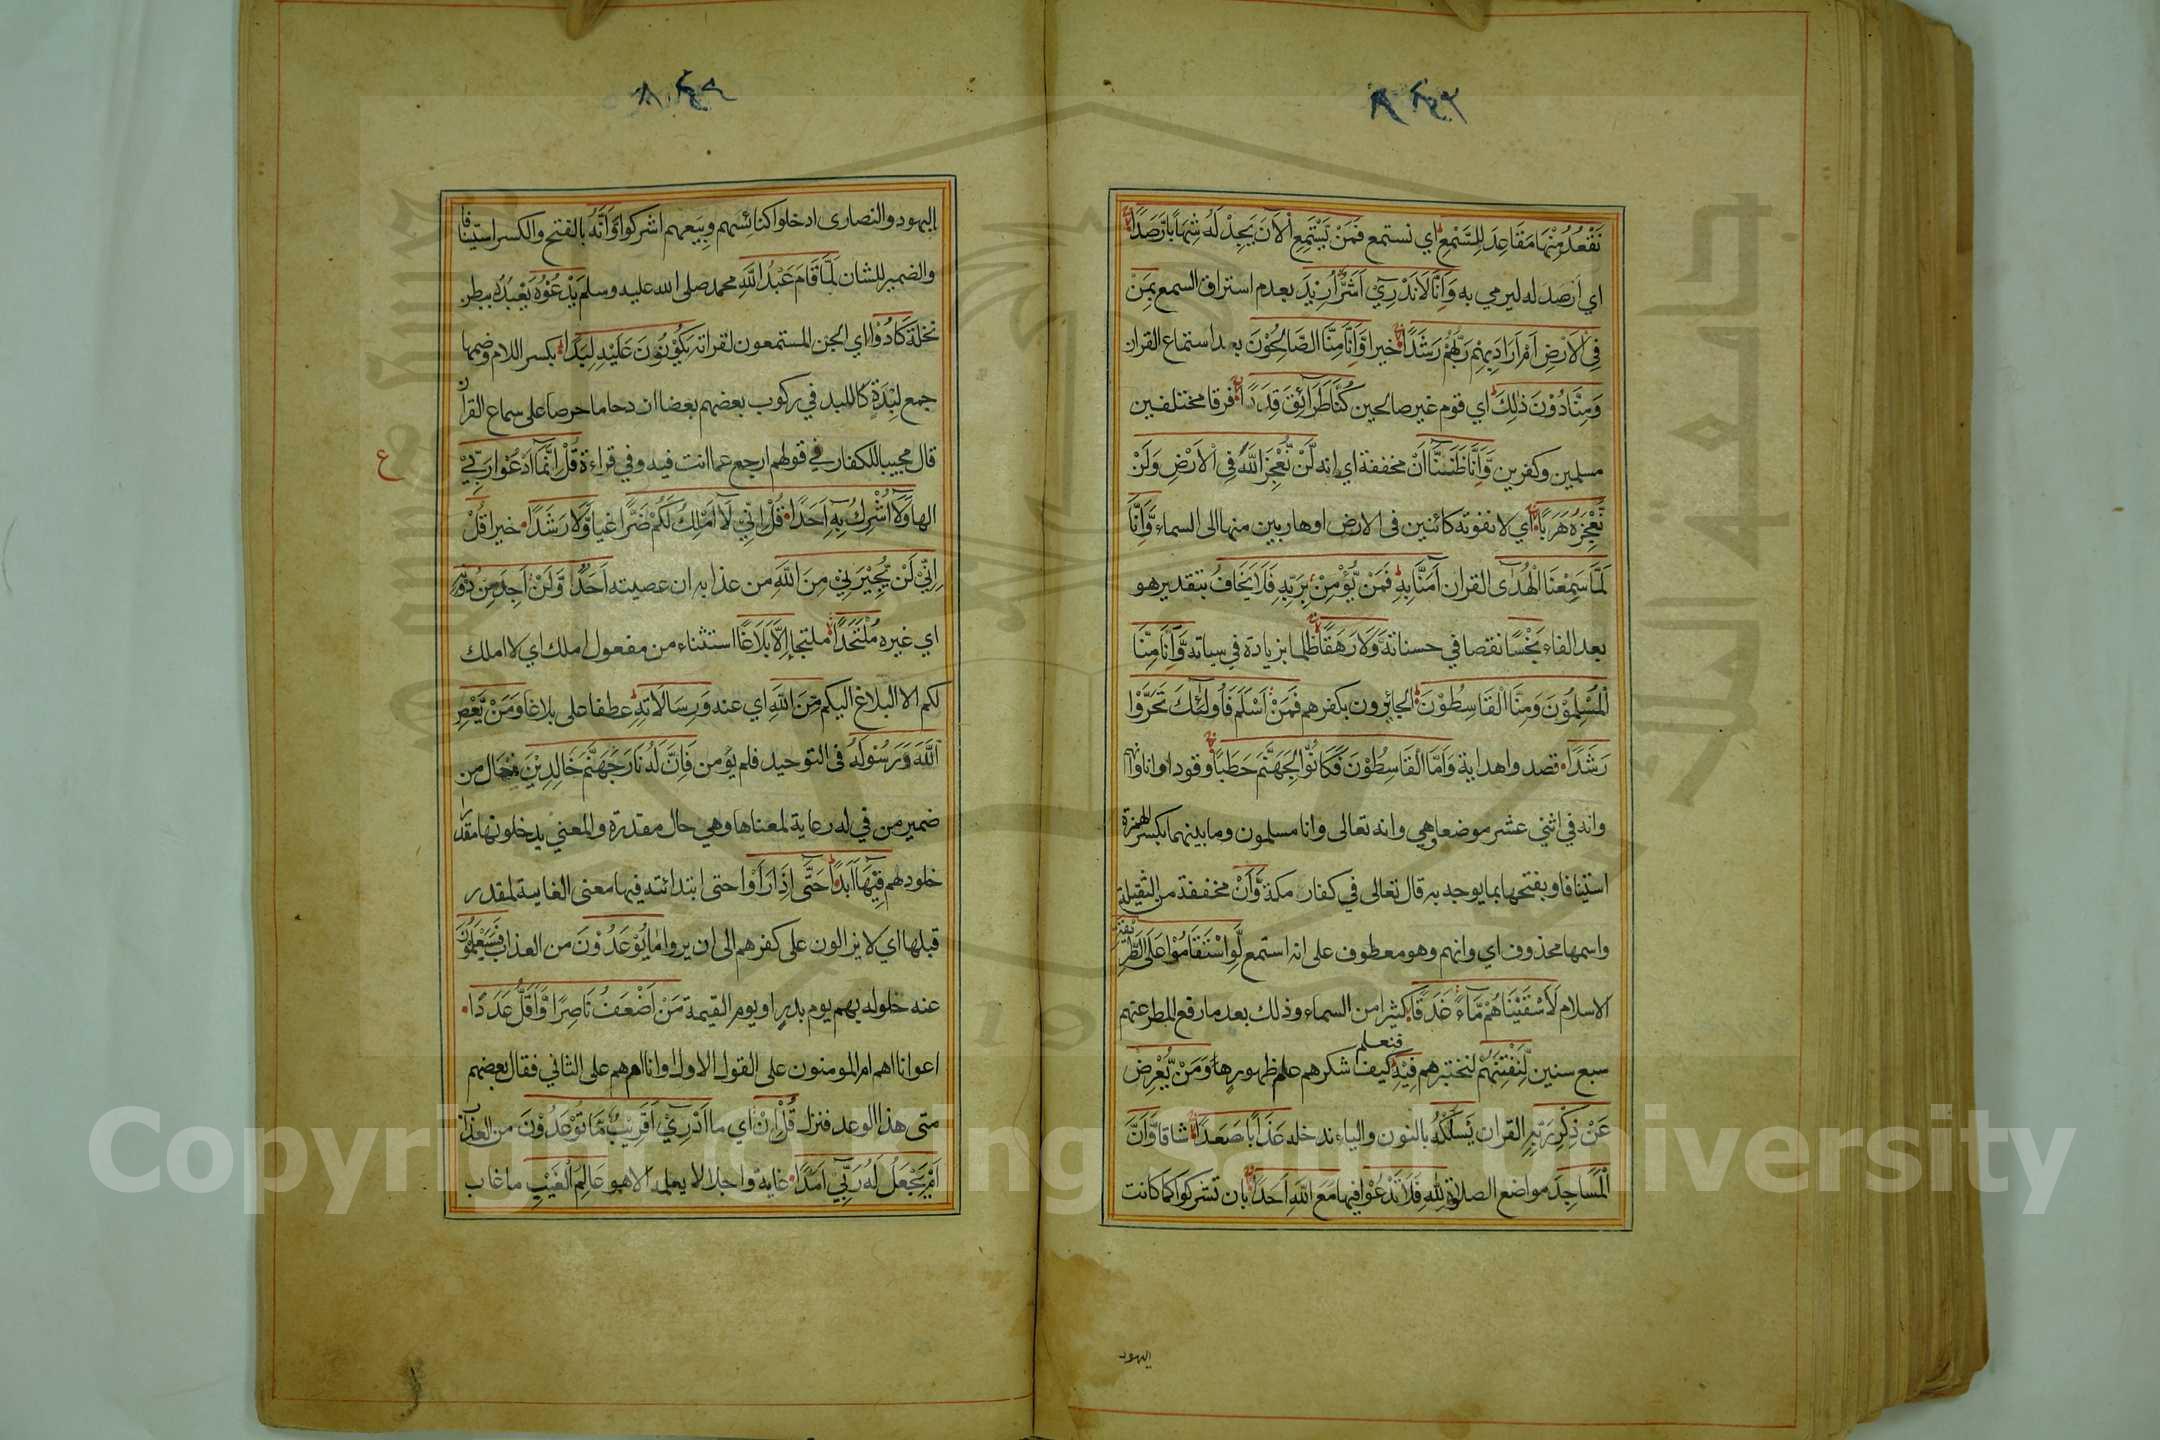 نَقْعُدُ مِنْهَا مَقَاعِدَ لِلسَّمْعِ اي نستمع فَمَنْ يَّسْتَمِعِ الْآنَ يَجِدْ لَهُ شِهَابًا رَّصَدًا
اي أرصد له ليرمي به وَاَنَّا لَا نَدْرِيْ اَشَرٌّ اُرِيْدَ بعدم استراق السمع بِمَنْ
فِي الْاَرْضِ اَمْ اَرَادَ بِهِمْ رَبُّهُمْ رَشَدًا خيرا وَّاَنَّا مِنَّا الصَّالِحُوْنَ بعد استماع القران
وَمِنَّا دُوْنَ ذٰلِكَ اي قوم غير صالحين كُنَّا طَرَائِقَ قِدَدًا فرقا مختلفين
مسلمين وكفرين وَّاَنَّا ظَنَنَّا اَنْ مخففة اي انه لَّنْ نُّعْجِزَ اللّٰهَ فِي الْاَرْضِ وَلَنْ
نُّعْجِزَهُ هَرَبًا اي لا نفوته كائنين في الارض او هاربين منها الى السماء وَّاَنَّا
لَمَّا سَمِعْنَا الْهُدٰى القران اٰمَنَّا بِهِ فَمَنْ يُّؤْمِنْ بِرَبِّهِ فَلَا يَخَافُ بتقدير هو
بعد الفاء بَخْسًا نقصا في حسناته وَّلَا رَهَقًا ظلما بزيادة في سياته وَّاَنَّا مِنَّا
الْمُسْلِمُوْنَ وَمِنَّا الْقَاسِطُوْنَ الجائرون بكفرهم فَمَنْ اَسْلَمَ فَاُولٰئِكَ تَحَرَّوْا
رَشَدًا قصدوا هداية وَاَمَّا الْقَاسِطُوْنَ فَكَانُوْا لِجَهَنَّمَ حَطَبًا وقودا وانا وانهم
وانه في اثني عشر موضعا وهي وانه تعالى وانا مسلمون وما بينهما بكسر الهمزة
استينافا وبفتحها بما يوجه به قال تعالى في كفار مكة وَّاَنْ مخففة من الثقيلة
واسمها محذوف اي وانهم وهو معطوف على انه استمع لَّوِ اسْتَقَامُوْا عَلَى الطَّرِيْقَةِ
الاسلام لَاَسْقَيْنَاهُمْ مَّاءً غَدَقًا كثيرا من السماء وذلك بعد ما رفع المطر عنهم
سبع سنين لِّنَفْتِنَهُمْ لنختبرهم فِيْهِ فنعلم كيف شكرهم علم ظهور وَمَنْ يُّعْرِضْ
عَنْ ذِكْرِ رَبِّهِ القران يَسْلُكْهُ بالنون والياء ندخله عَذَابًا صَعَدًا شاقا وَّاَنَّ
الْمَسَاجِدَ مواضع الصلاة لِلّٰهِ فَلَا تَدْعُوْا فيها مَعَ اللّٰهِ اَحَدًا بان تشركوا كما كانت
اليهود
اليهود والنصارى اذا دخلوا كنائسهم وبيعهم اشركوا وَّاَنَّهُ بالفتح والكسر استينافا
والضمير للشان لَمَّا قَامَ عَبْدُ اللّٰهِ محمد صلى الله عليه وسلم يَدْعُوْهُ يعبده ببطن
نخلة كَادُوْا اي الجن المستمعون لقراته يَكُوْنُوْنَ عَلَيْهِ لِبَدًا بكسر اللام وضمها
جمع لبدة كاللبد في ركوب بعضهم بعضا ازدحاما حرصا على سماع القران
ع
قال مجيبا للكفار في قولهم ارجع عما انت فيه وفي قراءة قُلْ اِنَّمَا اَدْعُوْا رَبِّيْ
الها وَلَا اُشْرِكُ بِهِ اَحَدًا قُلْ اِنِّيْ لَا اَمْلِكُ لَكُمْ ضَرًّا غيا وَّلَا رَشَدًا خيرا قُلْ
اِنِّيْ لَنْ يُّجِيْرَنِيْ مِنَ اللّٰهِ من عذابه ان عصيته اَحَدٌ وَّلَنْ اَجِدَ مِنْ دُوْنِهِ
اي غيره مُلْتَحَدًا ملتجا اِلَّا بَلَاغًا استثناء من مفعول املك اي لا املك
لكم الا البلاغ اليكم مِّنَ اللّٰهِ اي عنه وَرِسَالَاتِهِ عطفا على بلاغا وَمَنْ يَّعْصِ
اللّٰهَ وَرَسُوْلَهُ في التوحيد فلم يؤمن فَاِنَّ لَهُ نَارَ جَهَنَّمَ خَالِدِيْنَ حال من
ضمير من في له رعاية لمعناها وهي حال مقدرة والمعني يدخلونها مقدرا
خلودهم فِيْهَا اَبَدًا حَتّٰى اِذَا رَاَوْا حتى ابتدائية فيها معنى الغاية لمقدر
قبلها اي لا يزالون على كفرهم الى ان يروا مَا يُوْعَدُوْنَ من العذاب فَسَيَعْلَمُوْنَ
عنه حلوله بهم يوم بدر او يوم القيمة مَنْ اَضْعَفُ نَاصِرًا وَّاَقَلُّ عَدَدًا
اعوانا اهم ام المومنون على القول الاول وانا ام هم على الثاني فقال بعضهم
متى هذا الوعد فنزل قُلْ اِنْ اي ما اَدْرِيْ اَقَرِيْبٌ مَّا تُوْعَدُوْنَ من العذاب
اَمْ يَجْعَلُ لَهُ رَبِّيْ اَمَدًا غاية واجلا لا يعلمه الا هو عَالِمُ الْغَيْبِ ما غاب
Copyright © King Saud University